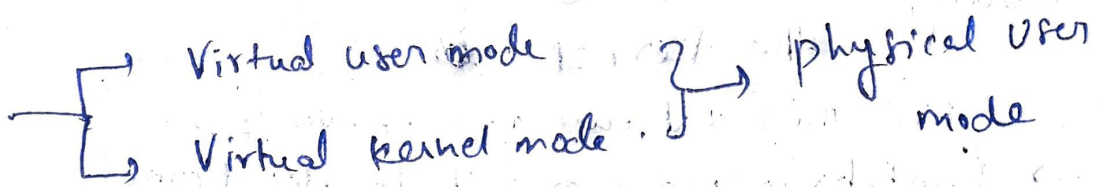 Virtual user mode
Virtual kernel mode
physical user
mode